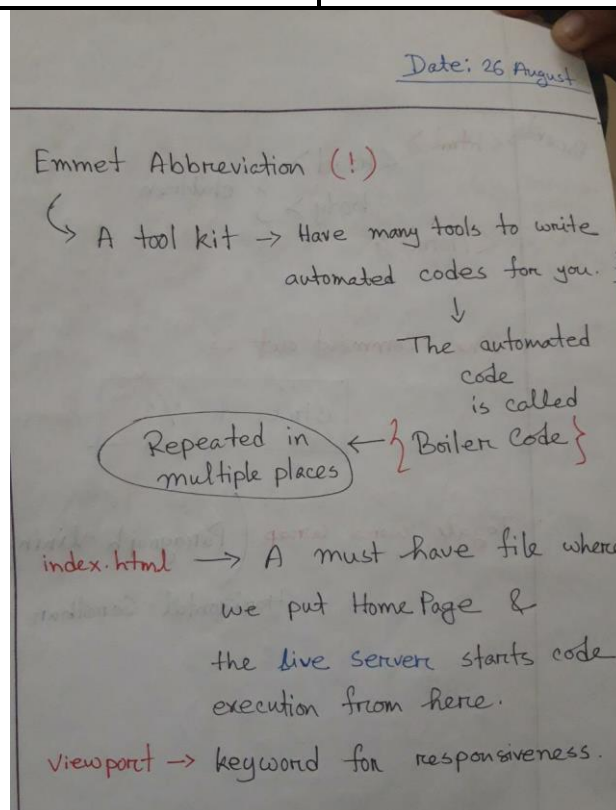 Date: 26 August
Emmet Abbreviation (!)
A tool kit → Have many tools to write
automated codes for you.
↓
The automated
code
is called
Repeated in ← {Boiler Code}
multiple places
index.html → A must have file where
we put Home Page &
the live server starts code
execution from here.
viewport → keyword for responsiveness.